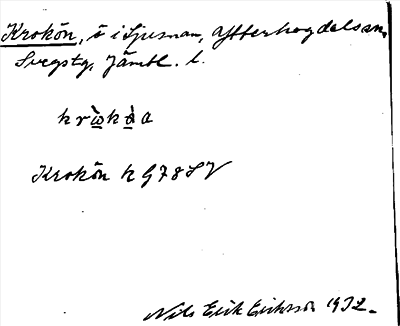 Krokön, ö i Ljusnan, Ytterhogdals sn,
Svegs tg, Jämtl. l.
krὼ̠kà̠a
Krokön k G78SV
Nils Erik Eriksson 1932.